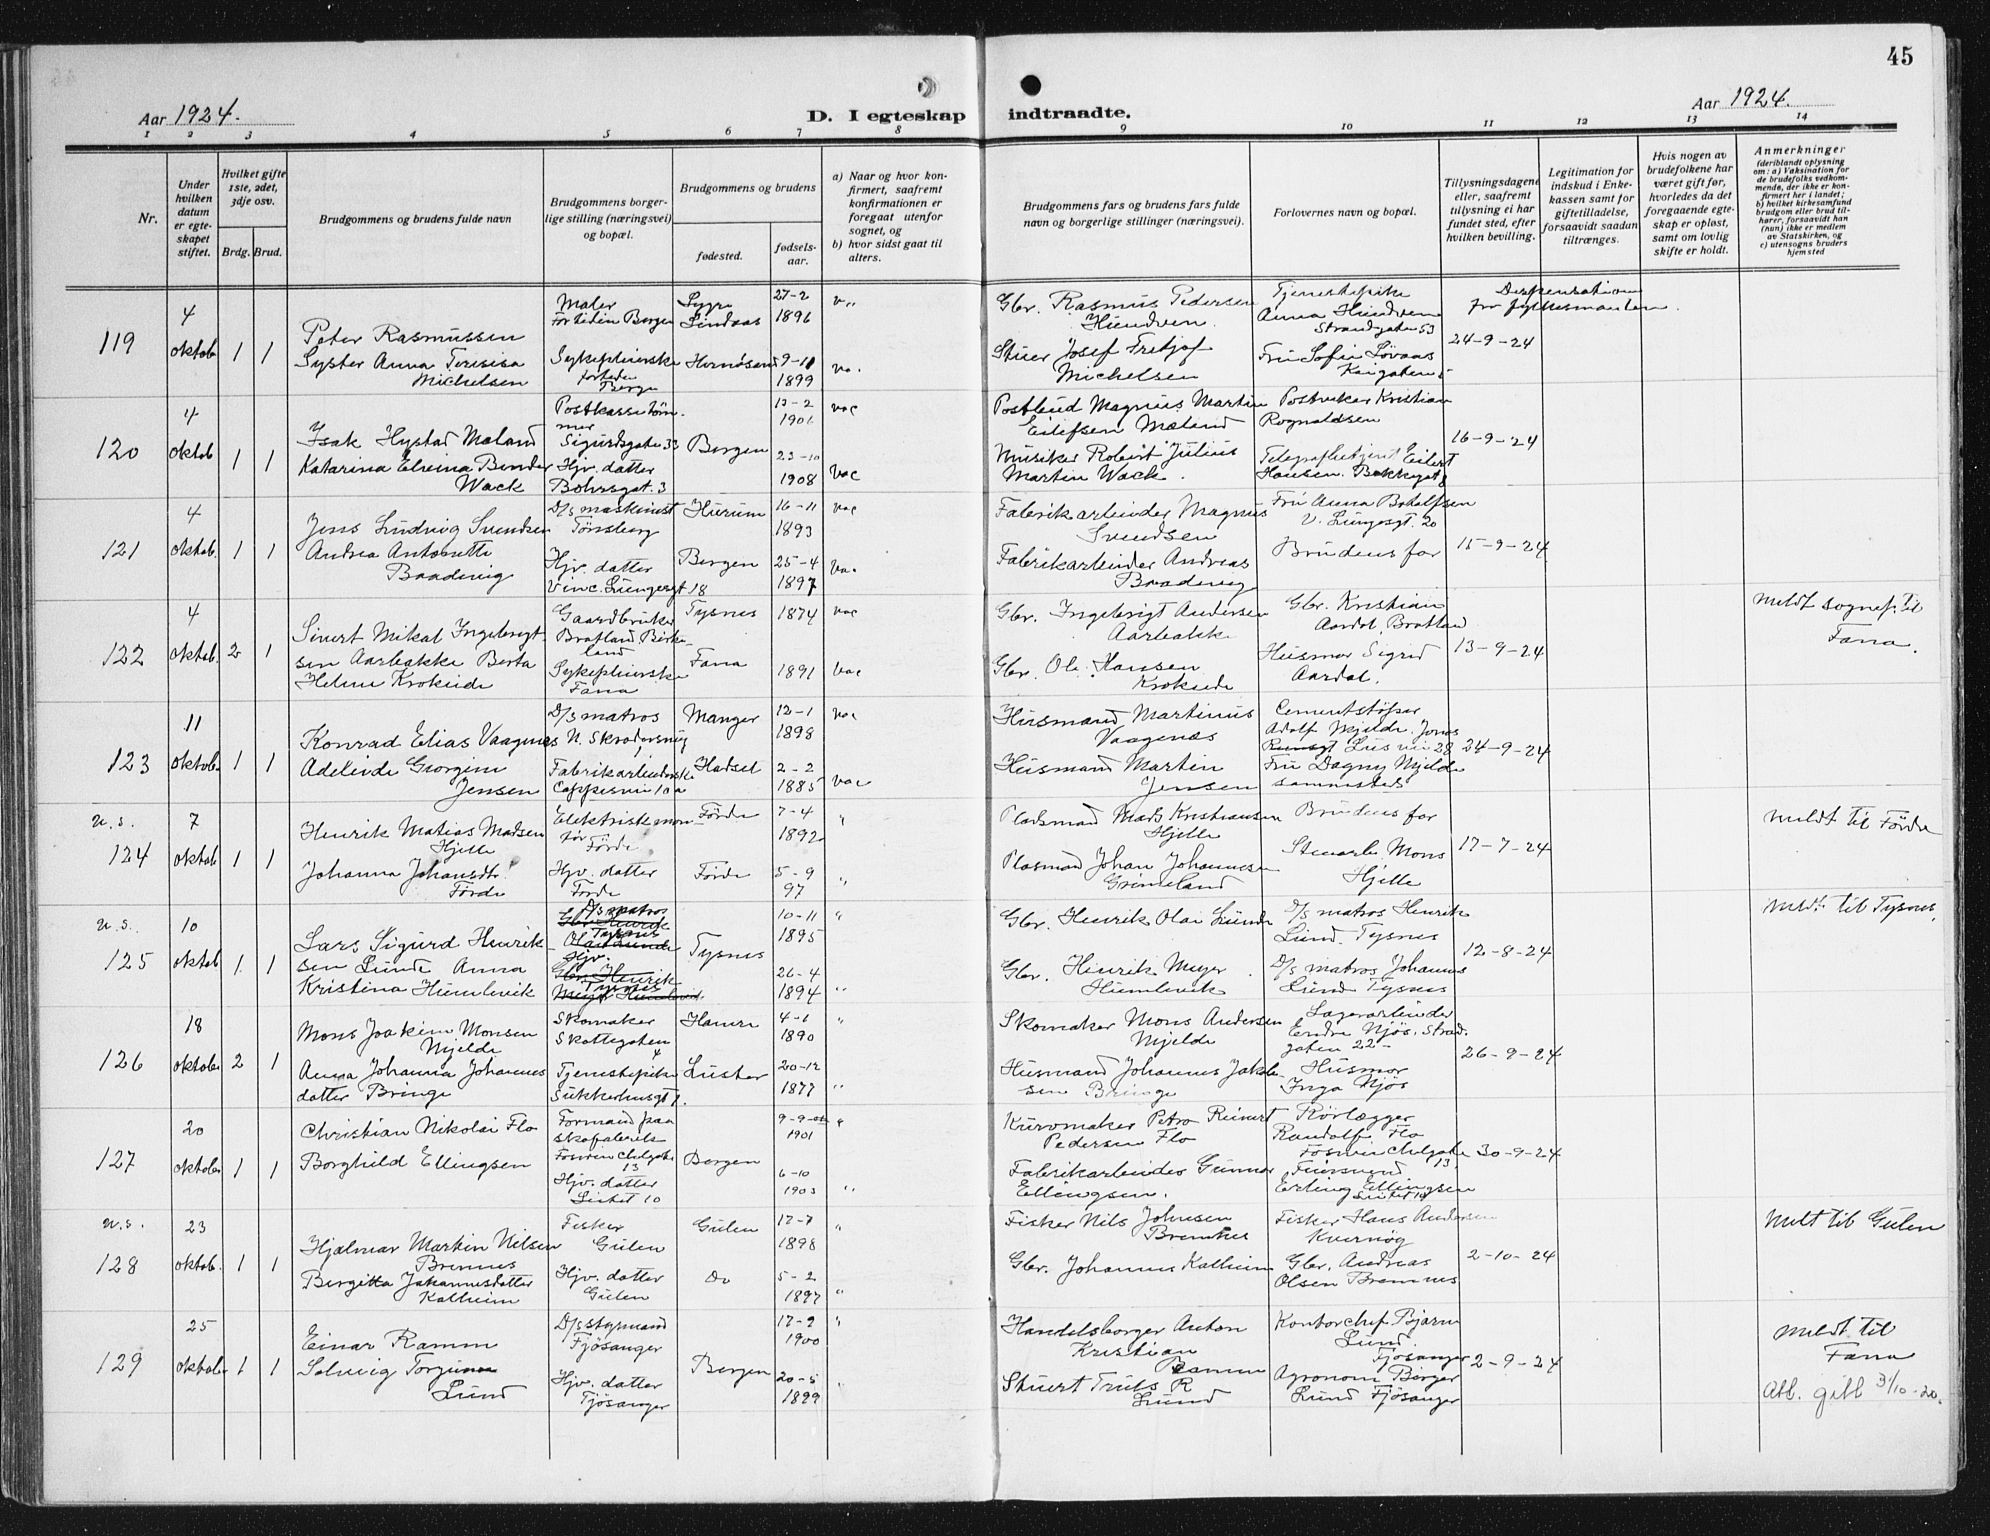 45
Aar 1924.
D. I egteskap indtraadte.
Aar 1924.
1 2 3 4 5 6 7 8 9 10 11 12 13 14
Nr.
Under hvilken datum er egteskapet stiftet.
Hvilket gifte 1ste, 2det, 3dje osv.
Brdg. Brud.
Brudgommens og brudens fulde navn
Brudgommens borgerlige stilling (næringsvei) og bopæl.
Brudgommens og brudens
fødested.
fødselsaar.
a) Naar og hvor konfirmert, saafremt konfirmationen er foregaat utenfor sognet, og
b) hvor sidst gaat til alters.
Brudgommens fars og brudens fars fulde navn og borgerlige stillinger (næringsvei).
Forlovernes navn og bopæl.
Tillysningsdagene eller, saafremt tillysning ei har fundet sted, efter hvilken bevilling.
Legitimation for indskud i Enkekassen samt for giftetilladelse, forsaavidt saadan tiltrænges.
Hvis nogen av brudefolkene har været gift før, hvorledes da det foregaaende egteskap er opløst, samt om lovlig skifte er holdt.
Anmerkninger
(deriblandt oplysning om: a) Vaksination for de brudefolks vedkommende, der ikke er konfirmert her i landet; b) hvilket kirkesamfund brudgom eller brud tilhører, forsaavidt han (hun) ikke er medlem av Statskirken, og c) utensogns bruders hjemsted
119
4 oktob
1 1
Peter Rasmussen
Anna Teresisa
Michelsen
Maler
Bergen
Lindaas
27-2
1896
Sykepleierske
9-11
1899
Gbr. Rasmus Pedersen
Hundven
Josef Fritjof
Michelsen
Tjenestepike
Anna Hundven
Strandgaten 53
Fru Sofie Lövaas
Kaigaten 5
Dispensation
fra fylkesmanden.
24-9-24
120
4 oktob
1 1
Isak Hystad Mæland
Katarina Elvina Bender
Wack
Sigurdsgate 33
Hjv. datter
Bohrsgt. 3
Bergen
1901
23-10
1908
vac
vac
Postbud Magnus Martin
Eilefsen Mæland
Musiker Robert Julius
Martin Wack.
Kristian
Rognaldsen
Eilert
Hansen.
16-9-24
121
4 oktob.
1 1
Jens Ludvig Svendsen
Andrea Antonette
Baadsvig
D/s maskinist
Tönsberg
Hjv. datter
Vinc. Lungesgt 18
Hurum
Bergen
16-11
1893
25-4
1897
vac
Fabrikarbeider Magnus
Svendsen
Fabrikarbeider Andreas
Fru Anna Botolfsen
V. Lungesgt. 20
Brudens far
15-9-24
122
4 oktob.
2 1
Sivert Mikal Ingebrigt-
sen Aarbakke Berta
Helene Krokeide
Gaardbruker
Sykepleierske
Fana
Tysnes
Fana
1874
1891
vac
vac
Gbr. Ingebrigt Andersen
Aarbakke
Gbr. Ole Hansen
Krokeide
Gbr. Kristian
Aardal, Bratland
Husmor Sigrid
Aardal.
13-9-24
meldt sognepr. til
Fana.
123
11 oktob.
1 1
Konrad Elias Vaagenes
Adelinde Georgine
Jensen
D/s matros
Fabrikarbeiderske
10 a
Manger
Hadsel
12-1
1898
2-2
1885
vac
vac
Husmand Martinus
Vaagenæs
Husmand Martin
Jensen
Cementstöper
Adolf Mjelde, Jonas
Liesvei 28
Fru Dagny Mjelde
sammesteds
24-9-24
u.s.
124
7 oktob.
1 1
Henrik Matias Madsen
Hjelle
Johanna Johansdtr.
Förde
Elektriskmon-
tör Förde
Hjv. datter
Förde
Förde
Förde
7-4
1892
5-9
97
Pladsmand Mads Kristiansen
Hjelle
Plasmand Johan Johannesen
Grimeland
Brudens far
Mons
Hjelle
17-7-24
meldt til Förde
u.s.
125
10 oktob
1 1
Lars Sigurd Henrik-
sen Lunde Anna
Kristina Humlevik
D/s matros
Tysnes
Hjv.
Tysnes
Tysnes
10-11
1895
26-4
1894
Gbr. Henrik Olai Lunde
Gbr. Henrik Meyer
Humlevik
D/s matros Henrik
Lund. Tysnes
D/s matros Johannes
Lund Tysnes
12-8-24
meldt til Tysnes,
126
18 oktober
2 1
Mons Joakim Monsen
Mjelde
Anna Johanna Johannes
datter Bringe
Skomaker
Skottegaten
4
Tjenestepike
Sukkerhusgt 7.
Hamre
Luster
4-1
1890
20-12
1877
Skomaker Mons Andersen
Mjelde
Husmand Johannes Jakob-
sen Bringe
Lagerarbeider
Endre Njös. Strand-
gaten 22-
Husmor
Inga Njös
26-9-24
127
20 oktober
1 1
Christian Nikolai Flo
Borghild Ellingsen
Formand paa
skofabrik
13
Hjv. datter
10
Bergen
1901
6-10
1903
Kurvmaker Petro Reinert
Pedersen Flo
Fabrikarbeider Gunnar
Ellingsen.
Rörlægger
Randolf Flo
13
Erling Ellingsen
30-9-24
u.s.
128
23 oktob.
1 1
Hjalmar Martin Nilsen
Bremnes
Bergitta Johannesdatter
Kalheim
Fisker
Gulen
Hjv. datter
Gulen
Gulen
Do
17-7
1898
5-2
1897
Fisker Nils Johnsen
Gbr. Johannes Kalheim
Fisker Hans Andersen
Gbr. Andreas
Olsen Bremnes
2-10-24
meldt til Gulen
129
25 oktober
1 1
Einar Ramm
Solveig
Lund
D/s styrmand
Fjösanger
Hjv. datter
Fjösanger
Bergen
17-2
1900
20-5
1899
Handelsborger Anton
Kristian
Ramm
Truls R
Lund
Kontorchef Bjarne
Lund
Fjösanger
Agronom Birger
Lund Fjösanger
2-9-24
meldt til
Fana
31/10-20.